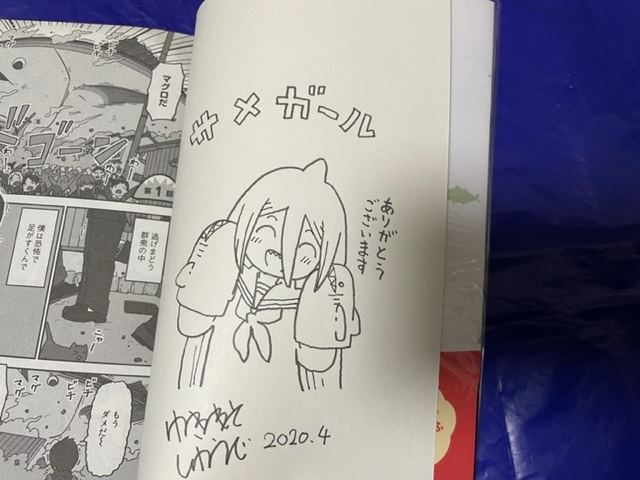 サメガール
ありがとう
ございます
2020.4
マグロだ
ドゴーン
第1話
逃げまどう
群衆の中
僕は恐怖で
足がすくんで
ニャー
マグ
マグ
ビチ
ビチ
もう
ダメだ〜